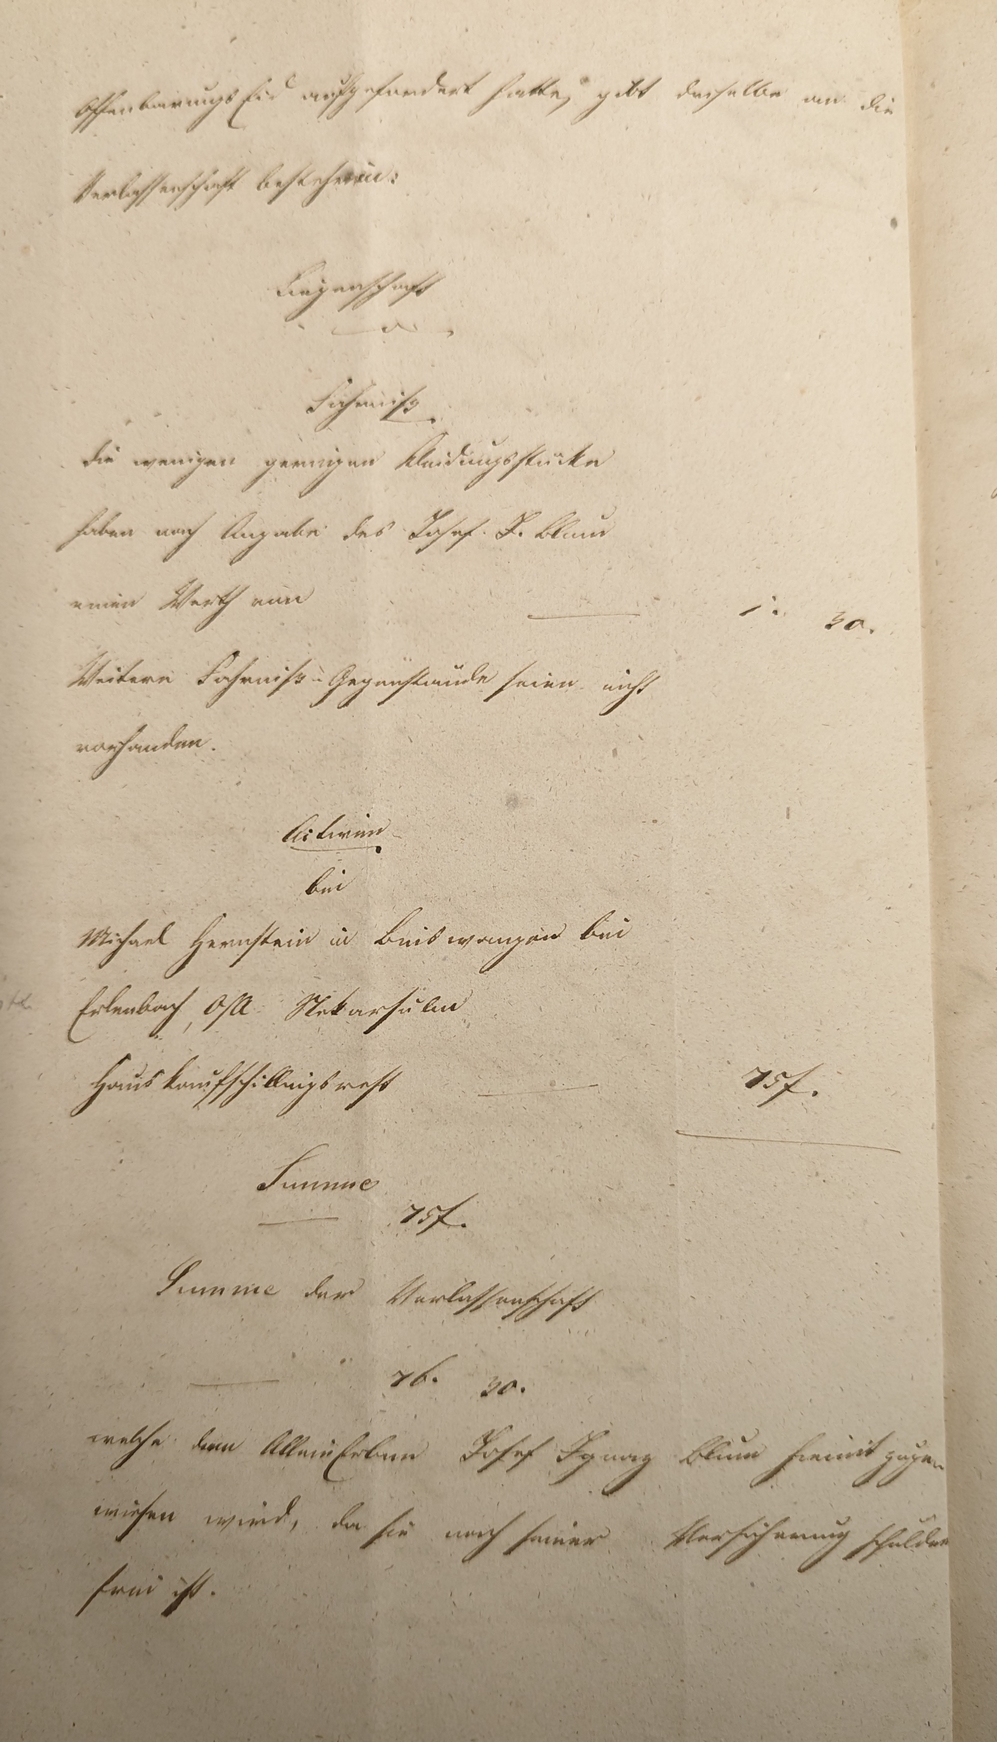 OffenbarungsEid aufgefordert hatte, gibt derselbe an die
Verlassenschaft bestehe in:
Liegenschaft
— 0 —
Fahrniß
Die wenigen geringen Kleidungsstücke
haben nach Angabe des Josef I. Blum
einen Werth von — 1. 30.
Weitere Fahrniß-Gegenstände seien nicht
vorhanden.
Activen
bei
Michael Hernstein in Binswangen bei
Erlenbach, O/A Nekarsulm
Hauskaufschillingsrest — 75f.
Summe
— 75f.
Summe der Verlassenschaft
— 76. 30.
welche dem AlleinErben Josef Ignaz Blum hiemit zuge-
wiesen wird, da sie nach seiner Versicherung schulden
frei ist.